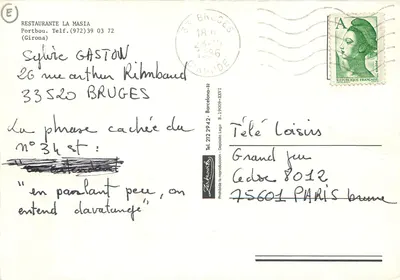 E
RESTAURANTE LA MASIA
Portbou. Telf.(972)39 03 72
(Girona)
Sylvie GASTON
26 rue arthur Rimbaud
33520 BRUGES
La phrase cachée du
n° 34 est :
"en parlant peu, on
entend davantage"
33 BRUGES
18 H
GIRONDE
A
REPUBLIQUE FRANÇAISE
Télé Loisirs
Grand jeu
Cedex 8012
75601 PARIS brune